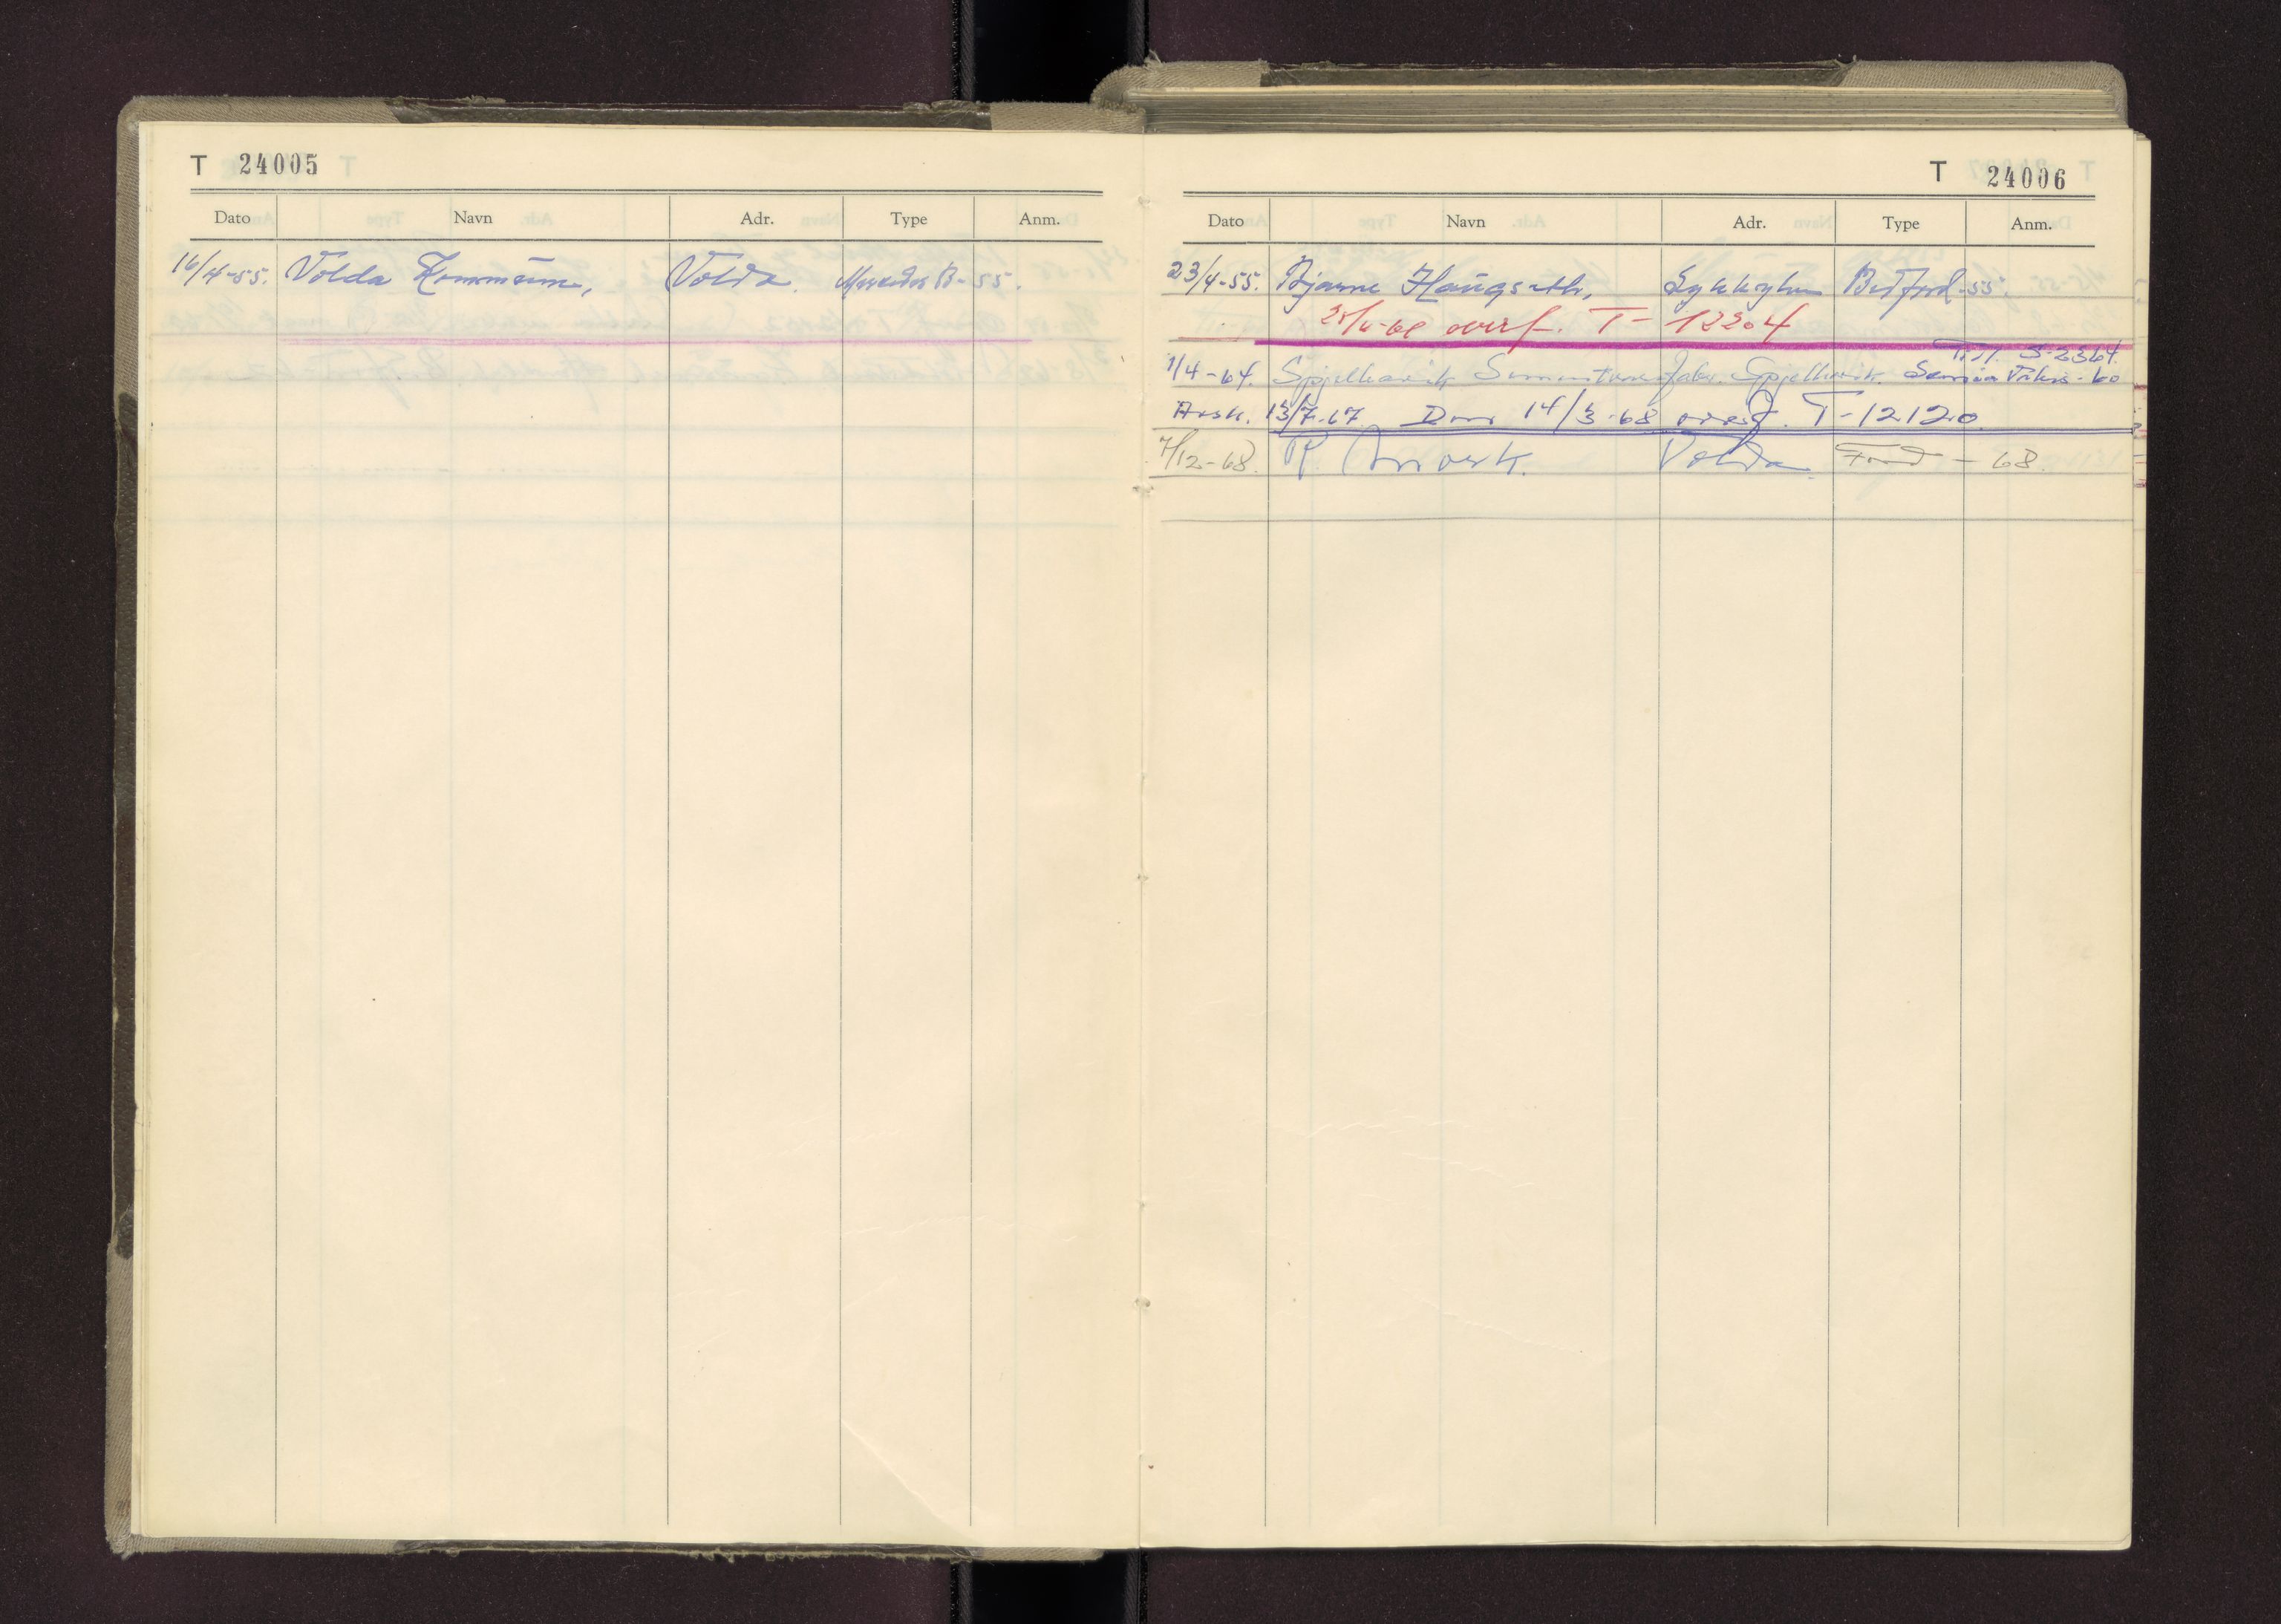 T 24005
Dato Navn Adr. Type Anm.
16/4-55. Volda Kommune, Volda. Mercedes B-55.
T 24006
Dato Navn Adr. Type Anm.
23/4-55. Bjarne Haugseth, Sykkylven Bedford-55.
overf. T-12204
Till. S-2364.
1/4-64. Spjelkavik Sementvarefabr. Spjelkavik. Taunus-60
Avsk. 13/7-67 Den 14/3-68 overf. T-12120.
7/12-68. R. Mork. Volda Ford - 68.